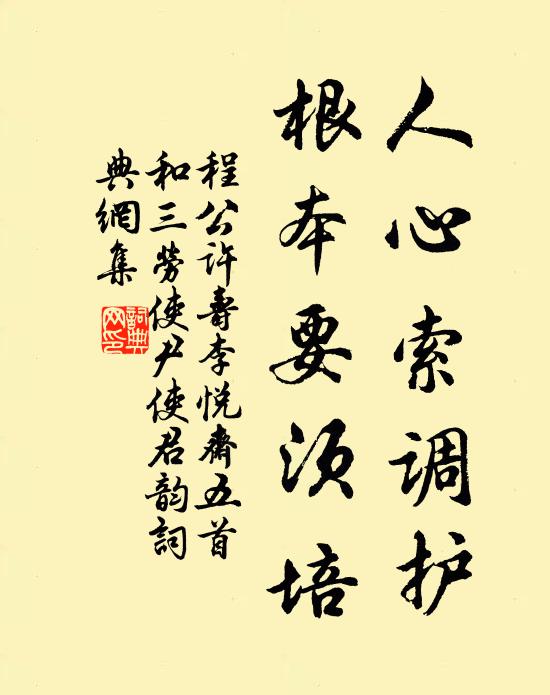 人心索调护
根本要须培
程公许寿李悦斋五首
和三劳使尹使君韵詞
典網集
詞典网印